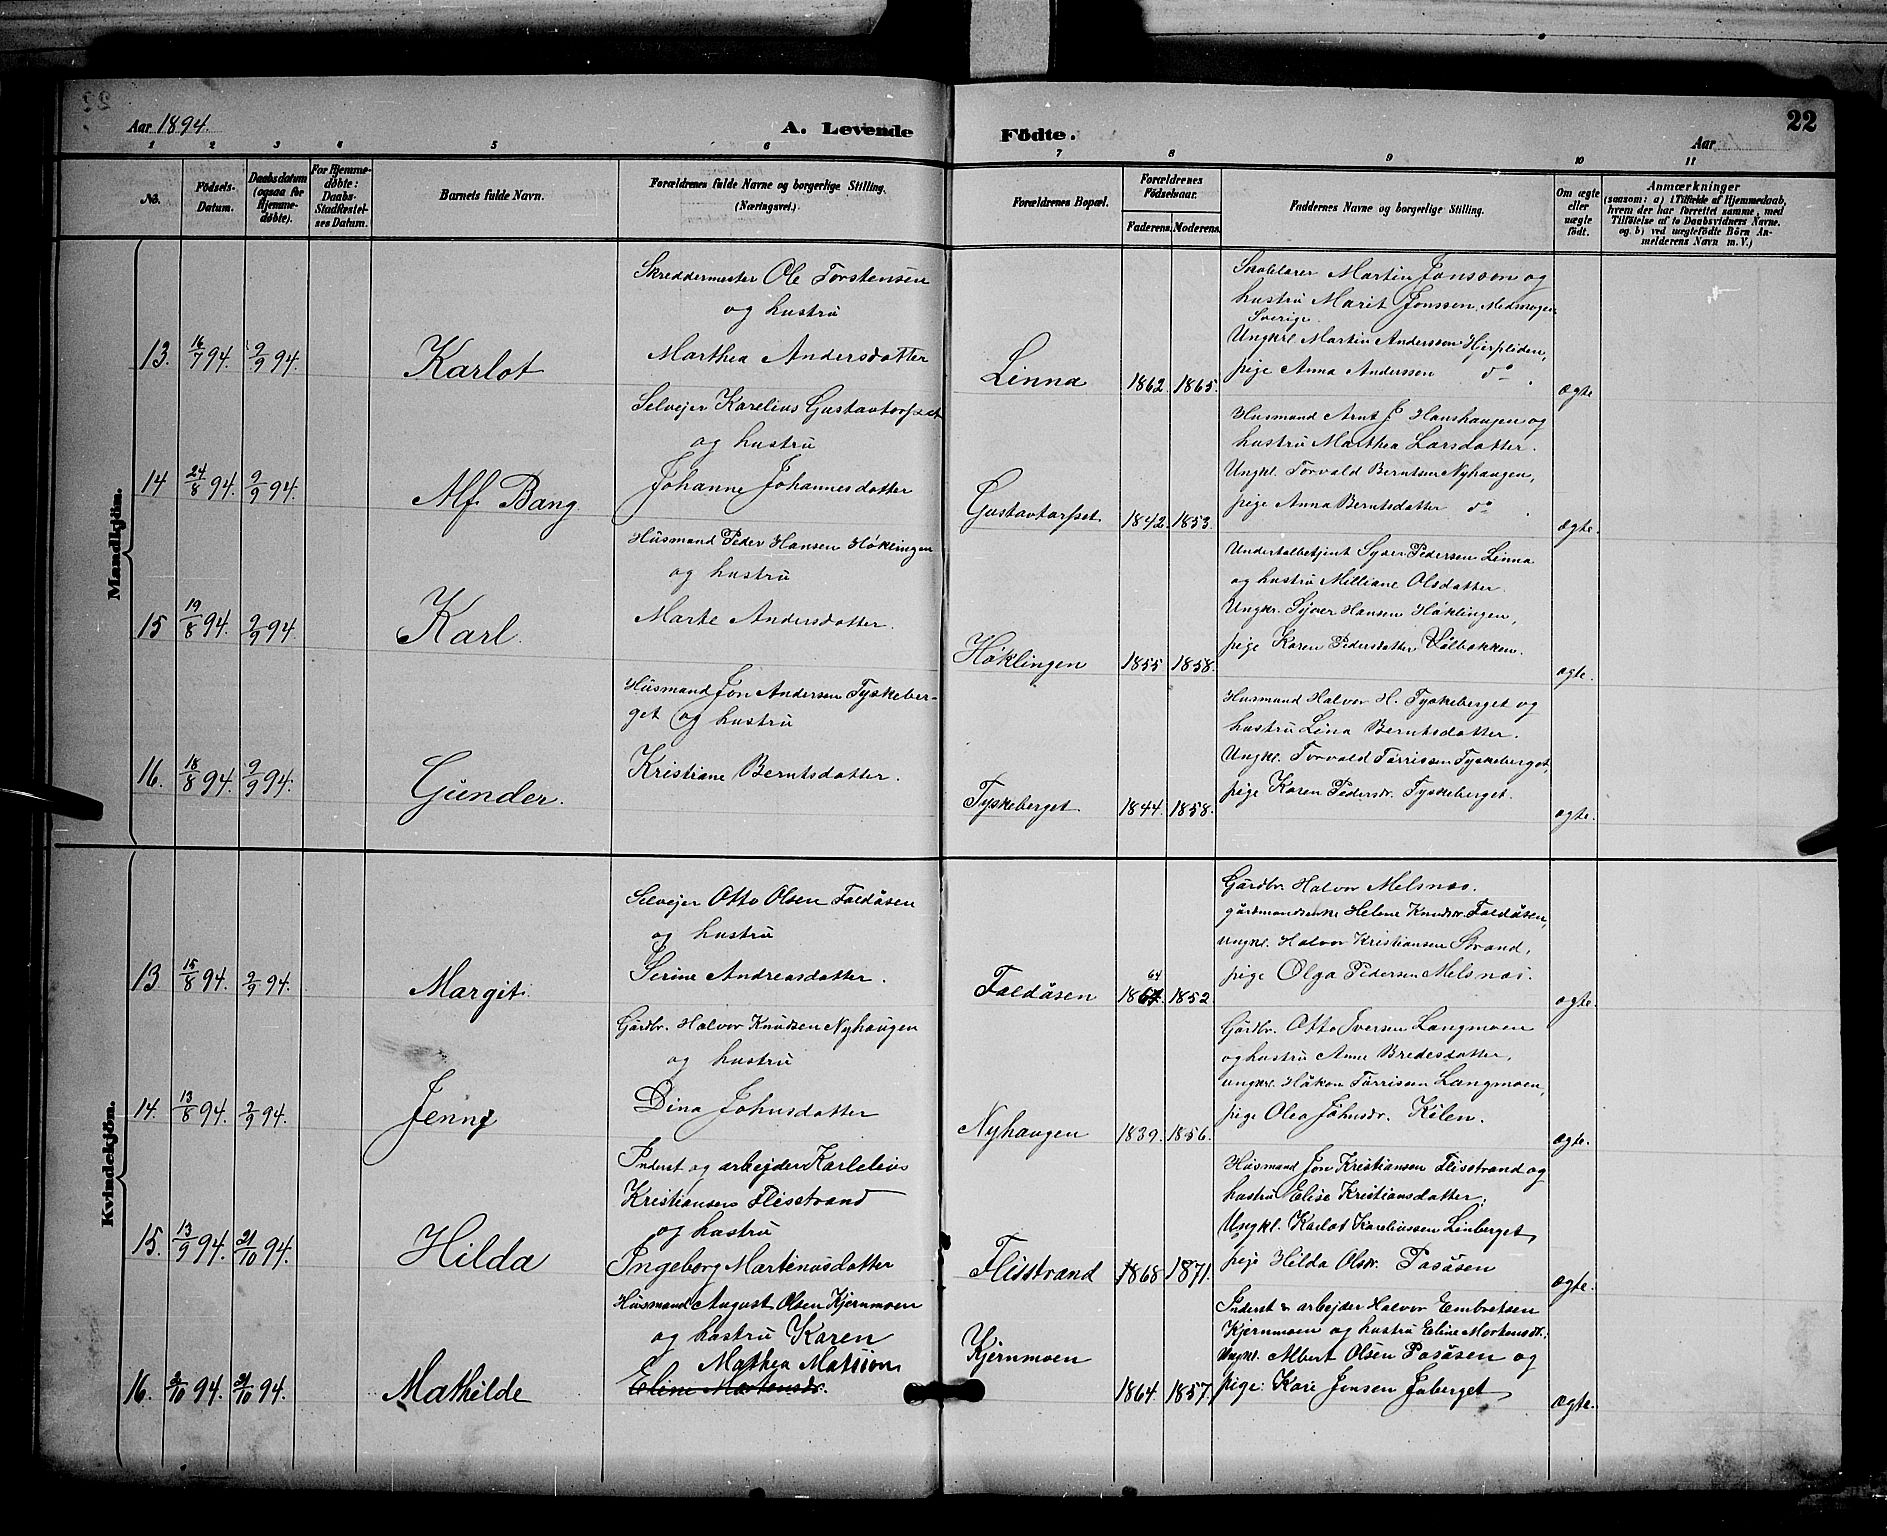 Aar 1894.
A. Levende
Födte.
Aar
22
1 2 3 4 5 6 7 8 9 10 11
No.
Födsels-
Datum.
Daabsdatum
(ogsaa for
Hjemme-
döbte).
For Hjemme-
döbte:
Daabs-
Stadfæstel-
ses Datum.
Barnets fulde Navn.
Forældrenes fulde Navne og borgerlige Stilling.
(Næringsvei.)
Forældrenes Bopæl.
Forældrenes
Födselsaar.
Faderens. Moderens.
Faddernes Navne og borgerlige Stilling.
Om ægte
eller
uægte
födt.
Anmærkninger
(saasom: a) i Tilfælde af Hjemmedaab,
hvem der har forrettet samme, med
Tilföielse af to Daabsvidners Navne.
og b) ved uægtefödte Börn An-
melderens Navn m. V.)
Mandkjön.
13. 16/7 94. 9/9 94.
Karlot
Skreddermester Ole Torstensen
og hustru
Marthea Andersdatter
Linna
1862. 1865.
Skolelærer Martin Jonsson og
hustru Marit Jonssen
Sverige.
Ungkrl Martin Anderssen Hierpliden,
pige Anna Anderssen do.
ægte
14 24/8 94. 9/9 94.
Alf Bang
Selvejer Karelius Gustavtorpet
og hustru
Johanne Johannesdatter
Gustavtorpet
1842. 1853.
Husmand Arnt J Hanshaugen og
hustru Marthea Larsdatter.
Ungkl. Torvald Berntsen Nyhaugen,
pige Anna Berntsdatter do.
ægte.
15 19/8 94. 9/9 94
Karl.
Husmand Peder Hansen Høklingen
og hustru
Marte Andersdatter.
Høklingen
1855 1858.
Pedersen Linna
og hustru Milliane Olsdatter.
Ungkr. Syver Hansen Høklingen,
pige Karen Pedersdatter Vålbakken.
ægte.
16. 18/8 94. 9/9 94.
Gunder.
Husmand Jon Andersen Tyskeber-
get og hustru
Kristiane Berntsdatter.
Tyskeberget
1844. 1858.
Husmand Halvor H. Tyskeberget og
hustru Lina Berntsdatter.
Ungkl. Torvald Tørrissen Tyskeberget,
pige Karen Pedersdr. Tyskeberget.
ægte.
Kvindekjön.
13 15/8 94. 9/9 94.
Margit.
Selvejer Otto Olsen Faldåsen
og hustru
Serine Andreasdatter.
Faldåsen
64
1867. 1852
Gårdbr. Halvor Melsnæs.
gårdmandsenke Helene Knudsdr. Faldåsen,
ungkl. Halvor Kristiansen Strand,
pige Olga Pedersen Melsnæs.
ægte.
14. 13/8 94. 9/9 94.
Jenny
Gårdbr. Halvor Knudsen Nyhaugen
og hustru
Dina Johnsdatter
Nyhaugen
1839. 1856.
Gårdbr. Otto Iversen Langmoen
og hustru Anne Bredesdatter,
ungkl. Håkon Tørrisen Langmoen,
pige Olea Johnsdr. Kilen.
ægte.
15. 13/9 94. 21/10 94.
Hilda
Inderst og arbejder Karlelius
Kristiansen Flisstrand
og hustru
Ingeborg Martinusdatter
Flisstrand
1868 1871.
Husmand Jon Kristiansen Flisstrand og
hustru Elise Kristiansdatter.
Ungkl. Karlot Kareliussen Linberget,
pige Hilda Olsdr. Posåsen
ægte.
16. 2/10 94. 21/10 94.
Mathilde
Husmand August Olsen Kjernmoen
og hustru Karen
Mathea
Eline Mortensdr.
Kjernmoen
1864. 1857.
Inderst & arbejder Halvor Embretsen
Kjernmoen og hustru Eline Mortensdr.
Ungkl. Albert Olsen Posåsen og
pige: Kari Jonsen Joberget
ægte.